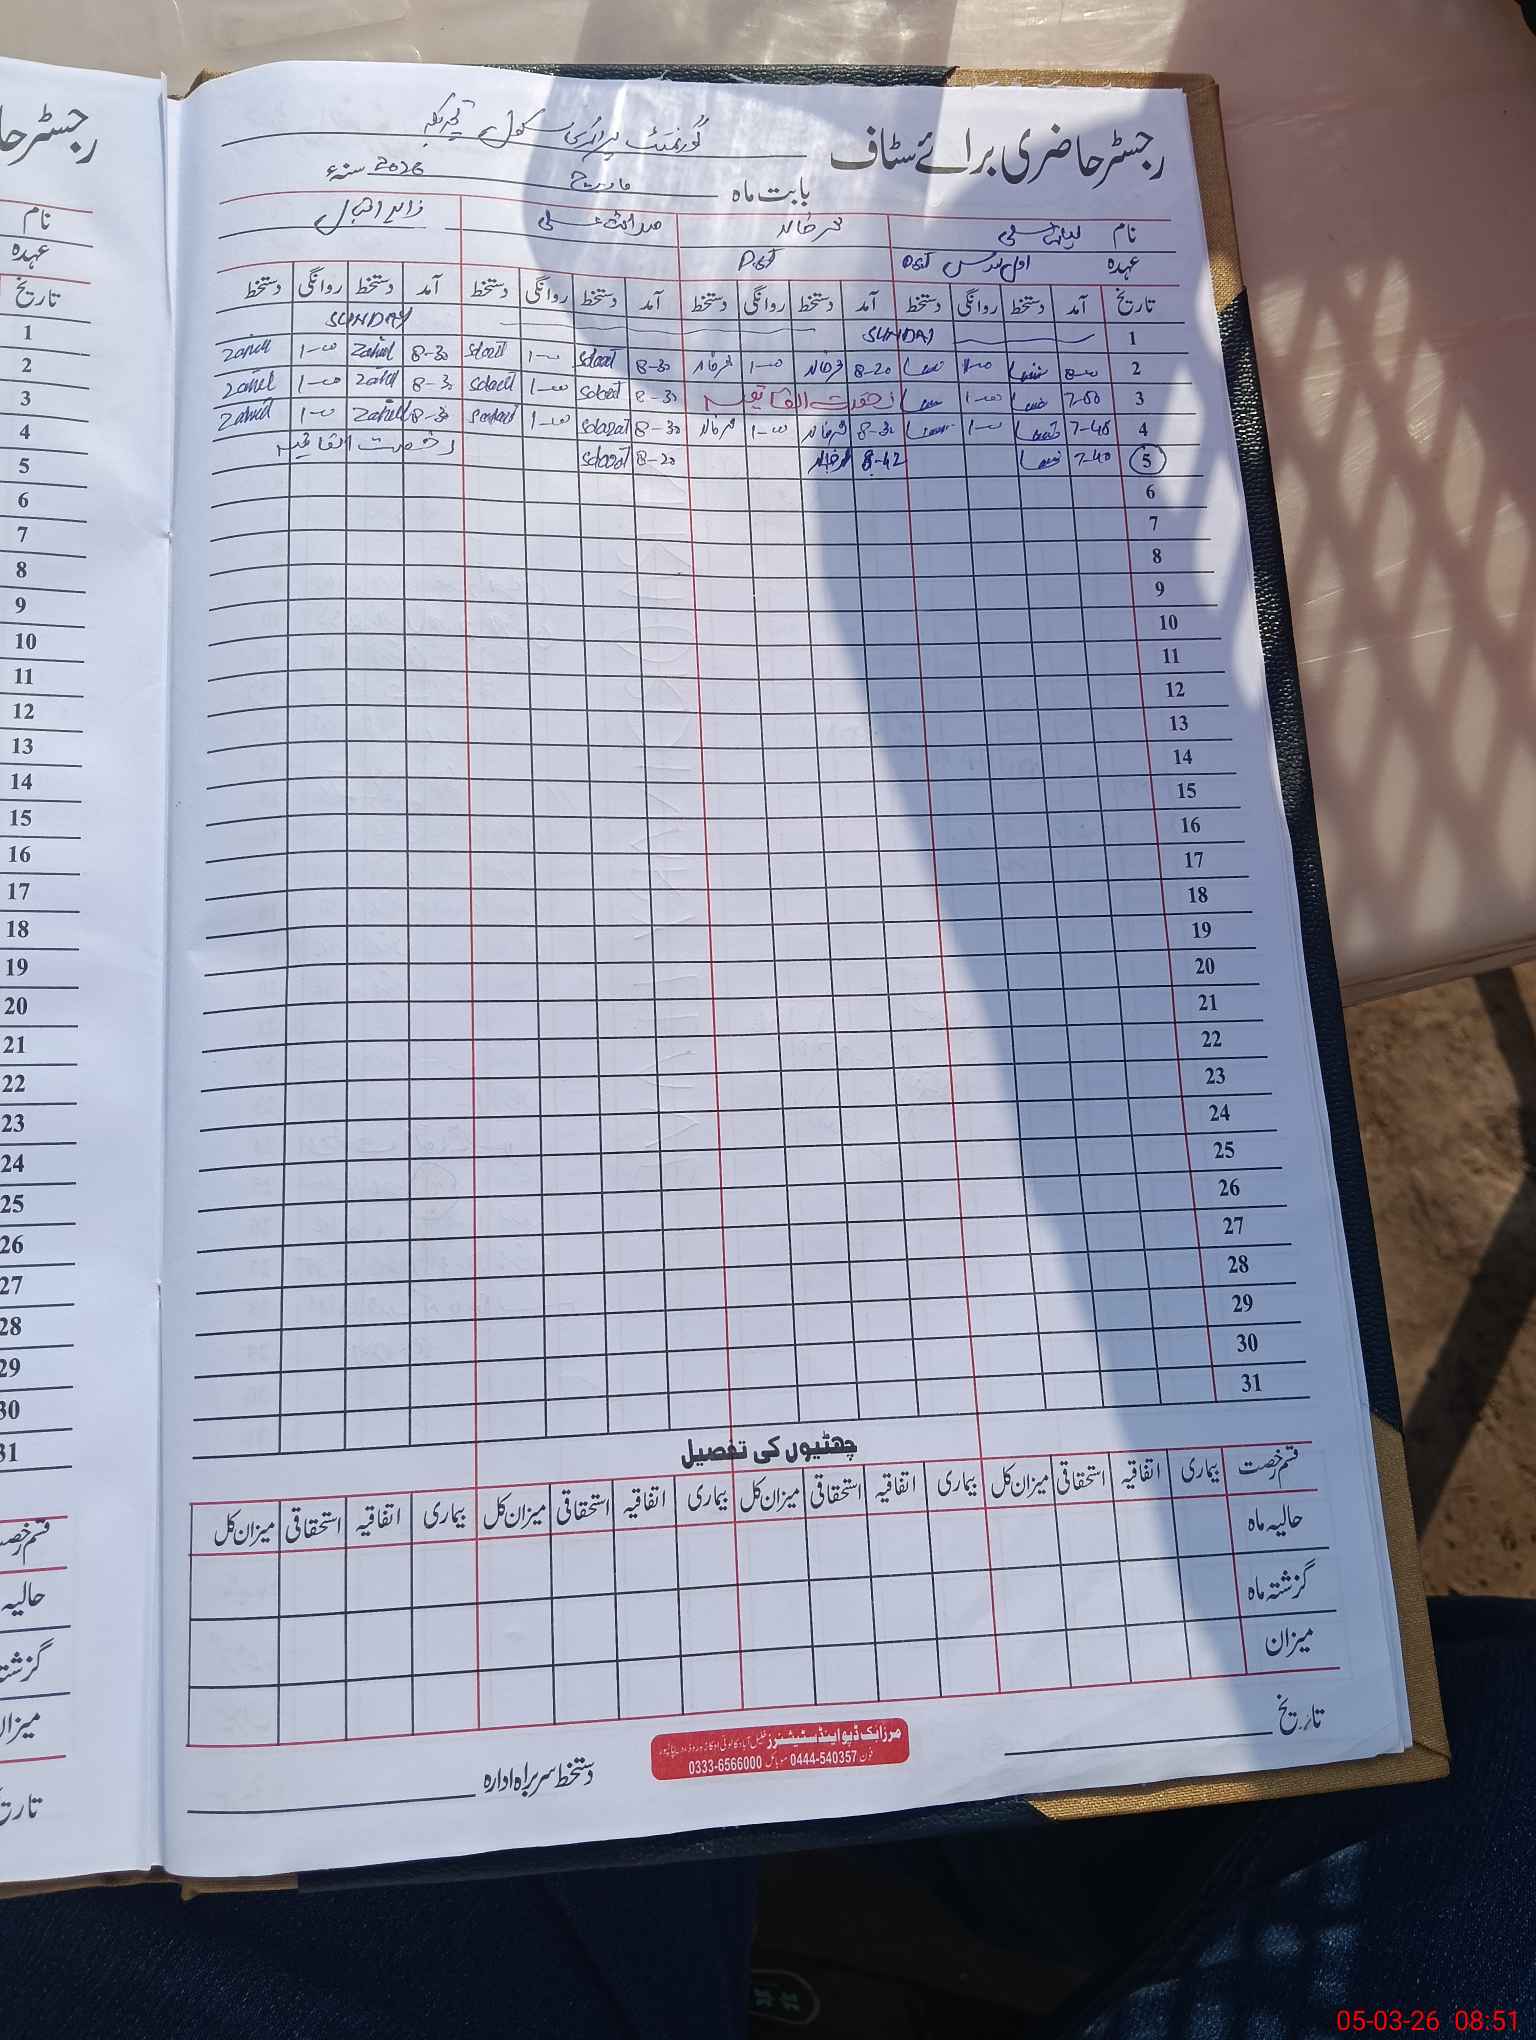 رجسٹر حاضری برائے سٹاف گورنمنٹ پرائمری سکول
بابت ماہ مارچ 2026 سنہء
نام محمد خالد صداقت علی زاہد اقبال
عہدہ اول مدرس PST PST
تاریخ آمد دستخط روانگی دستخط آمد دستخط روانگی دستخط آمد دستخط روانگی دستخط آمد دستخط روانگی دستخط
1 SUNDAY SUNDAY
2 8-00 1-00 8-20 1-00 8-30 Sdaqat 1-00 Sdaqat 8-30 Zahid 1-00 Zahid
3 7-50 1-00 رخصت اتفاقیہ 8-30 Sdaqat 1-00 Sdaqat 8-30 Zahid 1-00 Zahid
4 7-45 1-00 8-30 1-00 8-30 Sdaqat 1-00 Sdaqat 8-30 Zahid 1-00 Zahid
5 7-40 8-42 8-20 Sdaqat رخصت اتفاقیہ
6
7
8
9
10
11
12
13
14
15
16
17
18
19
20
21
22
23
24
25
26
27
28
29
30
31
چھٹیوں کی تفصیل
قسم رخصت بیماری اتفاقیہ استحقاقی میزان کل بیماری اتفاقیہ استحقاقی میزان کل بیماری اتفاقیہ استحقاقی میزان کل بیماری اتفاقیہ استحقاقی میزان کل
حالیہ ماہ
گزشتہ ماہ
میزان
تاریخ
مرزا بک ڈپو اینڈ سٹیشنرز
فون 0444-540357 موبائل 0333-6566000
دستخط سربراہ ادارہ
رجسٹر حا
نام
عہدہ
تاریخ
1
2
3
4
5
6
7
8
9
10
11
12
13
14
15
16
17
18
19
20
21
22
23
24
25
26
27
28
29
30
31
قسم رخصت
حالیہ
گزشتہ
میزان
تاریخ
05-03-26 08:51